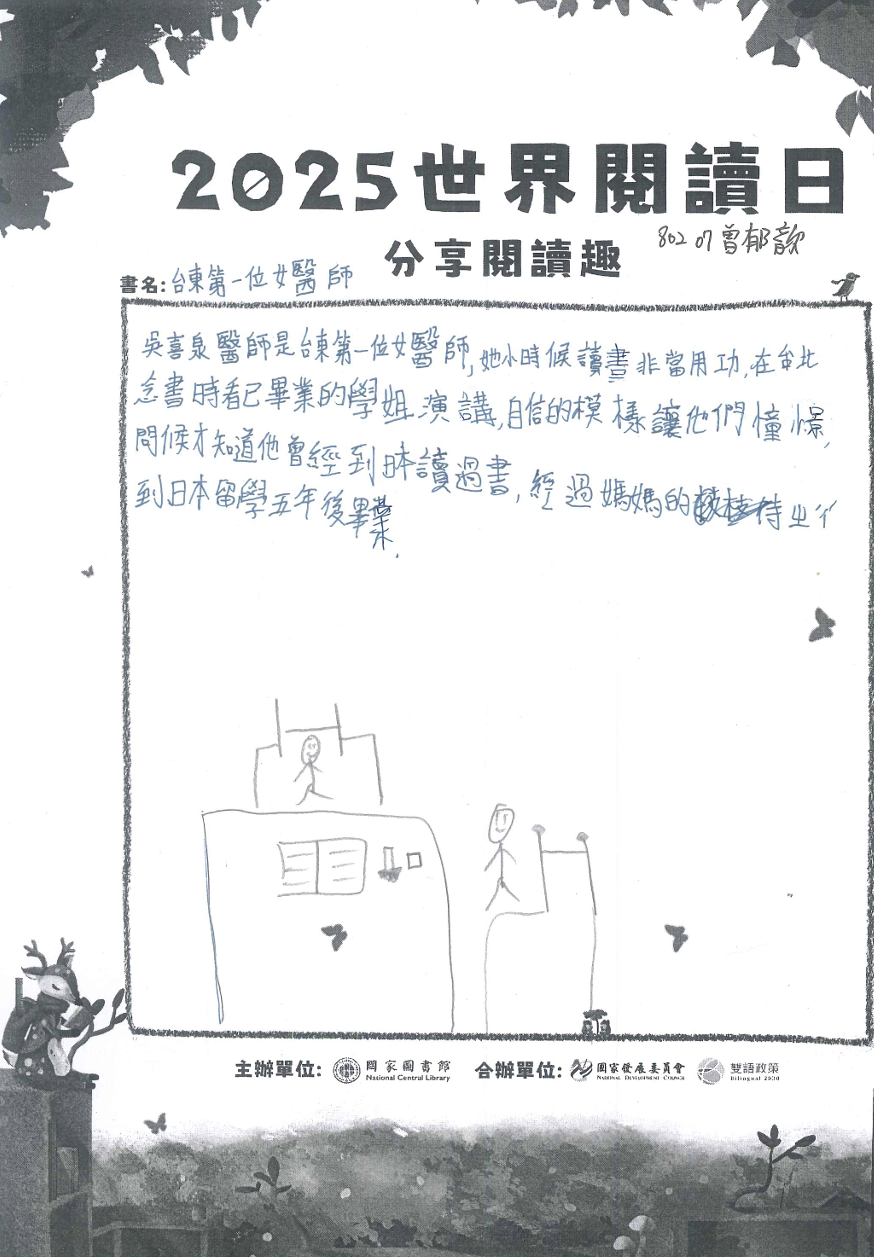 2025世界閱讀日
分享閱讀趣
802 07 曾郁歆
書名:台東第一位女醫師
吳喜泉醫師是台東第一位女醫師,她小時候讀書非當用功,在台北
念書時看已畢業的學姐演講,自信的模樣讓他們憧憬,
問候才知道他曾經到日本讀過書,經過媽媽的 待出
到日本留學五年後畢業.
主辦單位: 國家圖書館 合辦單位: 國家發展委員會 雙語政策
National Central Library National Development Council Bilingual 2030